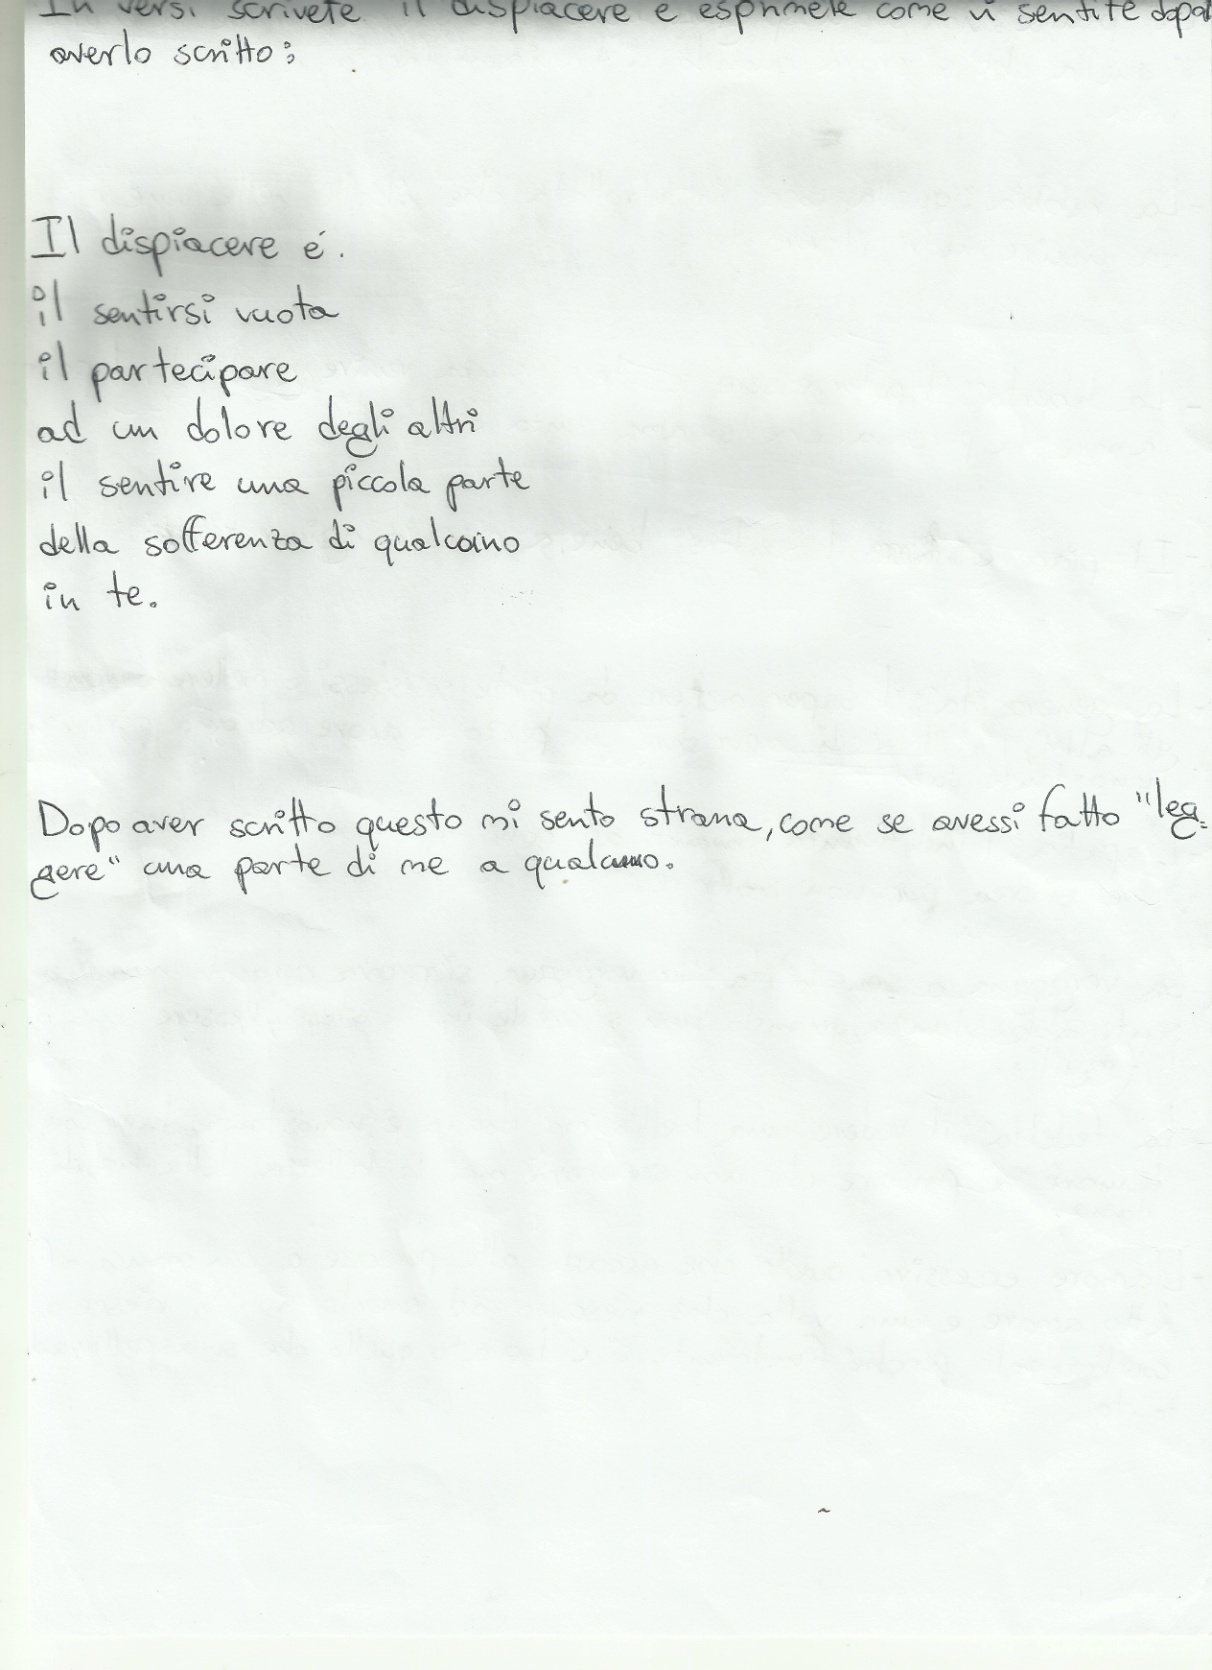 In versi scrivete il dispiacere e esprimete come vi sentite dopo
averlo scritto:
Il dispiacere é.
il sentirsi vuota
il partecipare
ad un dolore degli altri
il sentire una piccola parte
della sofferenza di qualcuno
in te.
Dopo aver scritto questo mi sento strana, come se avessi fatto "leg-
gere" una parte di me a qualcuno.